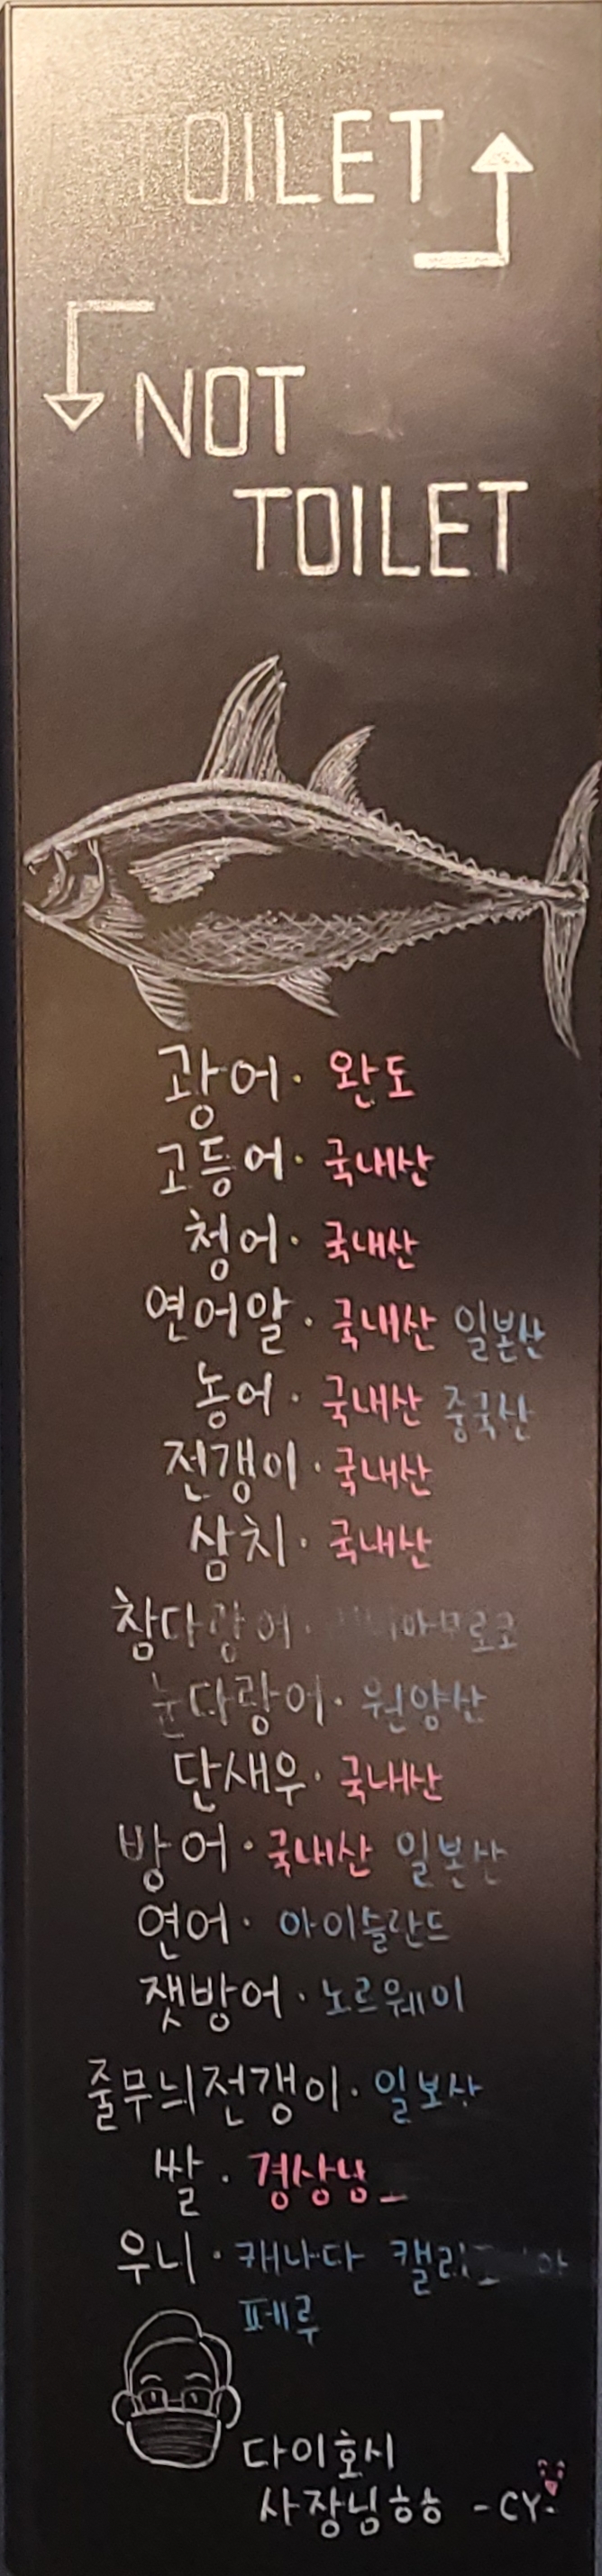 TOILET
NOT
TOILET
광어 · 완도
고등어 · 국내산
청어 · 국내산
연어알 · 국내산 일본산
농어 · 국내산 중국산
전갱이 · 국내산
삼치 · 국내산
참다랑어 ·
눈다랑어 · 원양산
단새우 · 국내산
방어 · 국내산 일본산
연어 · 아이슬란드
잿방어 · 노르웨이
줄무늬전갱이 · 일보산
쌀 ·
우니 · 캐나다
페루
다이호시
사장님ㅎㅎ -CY-